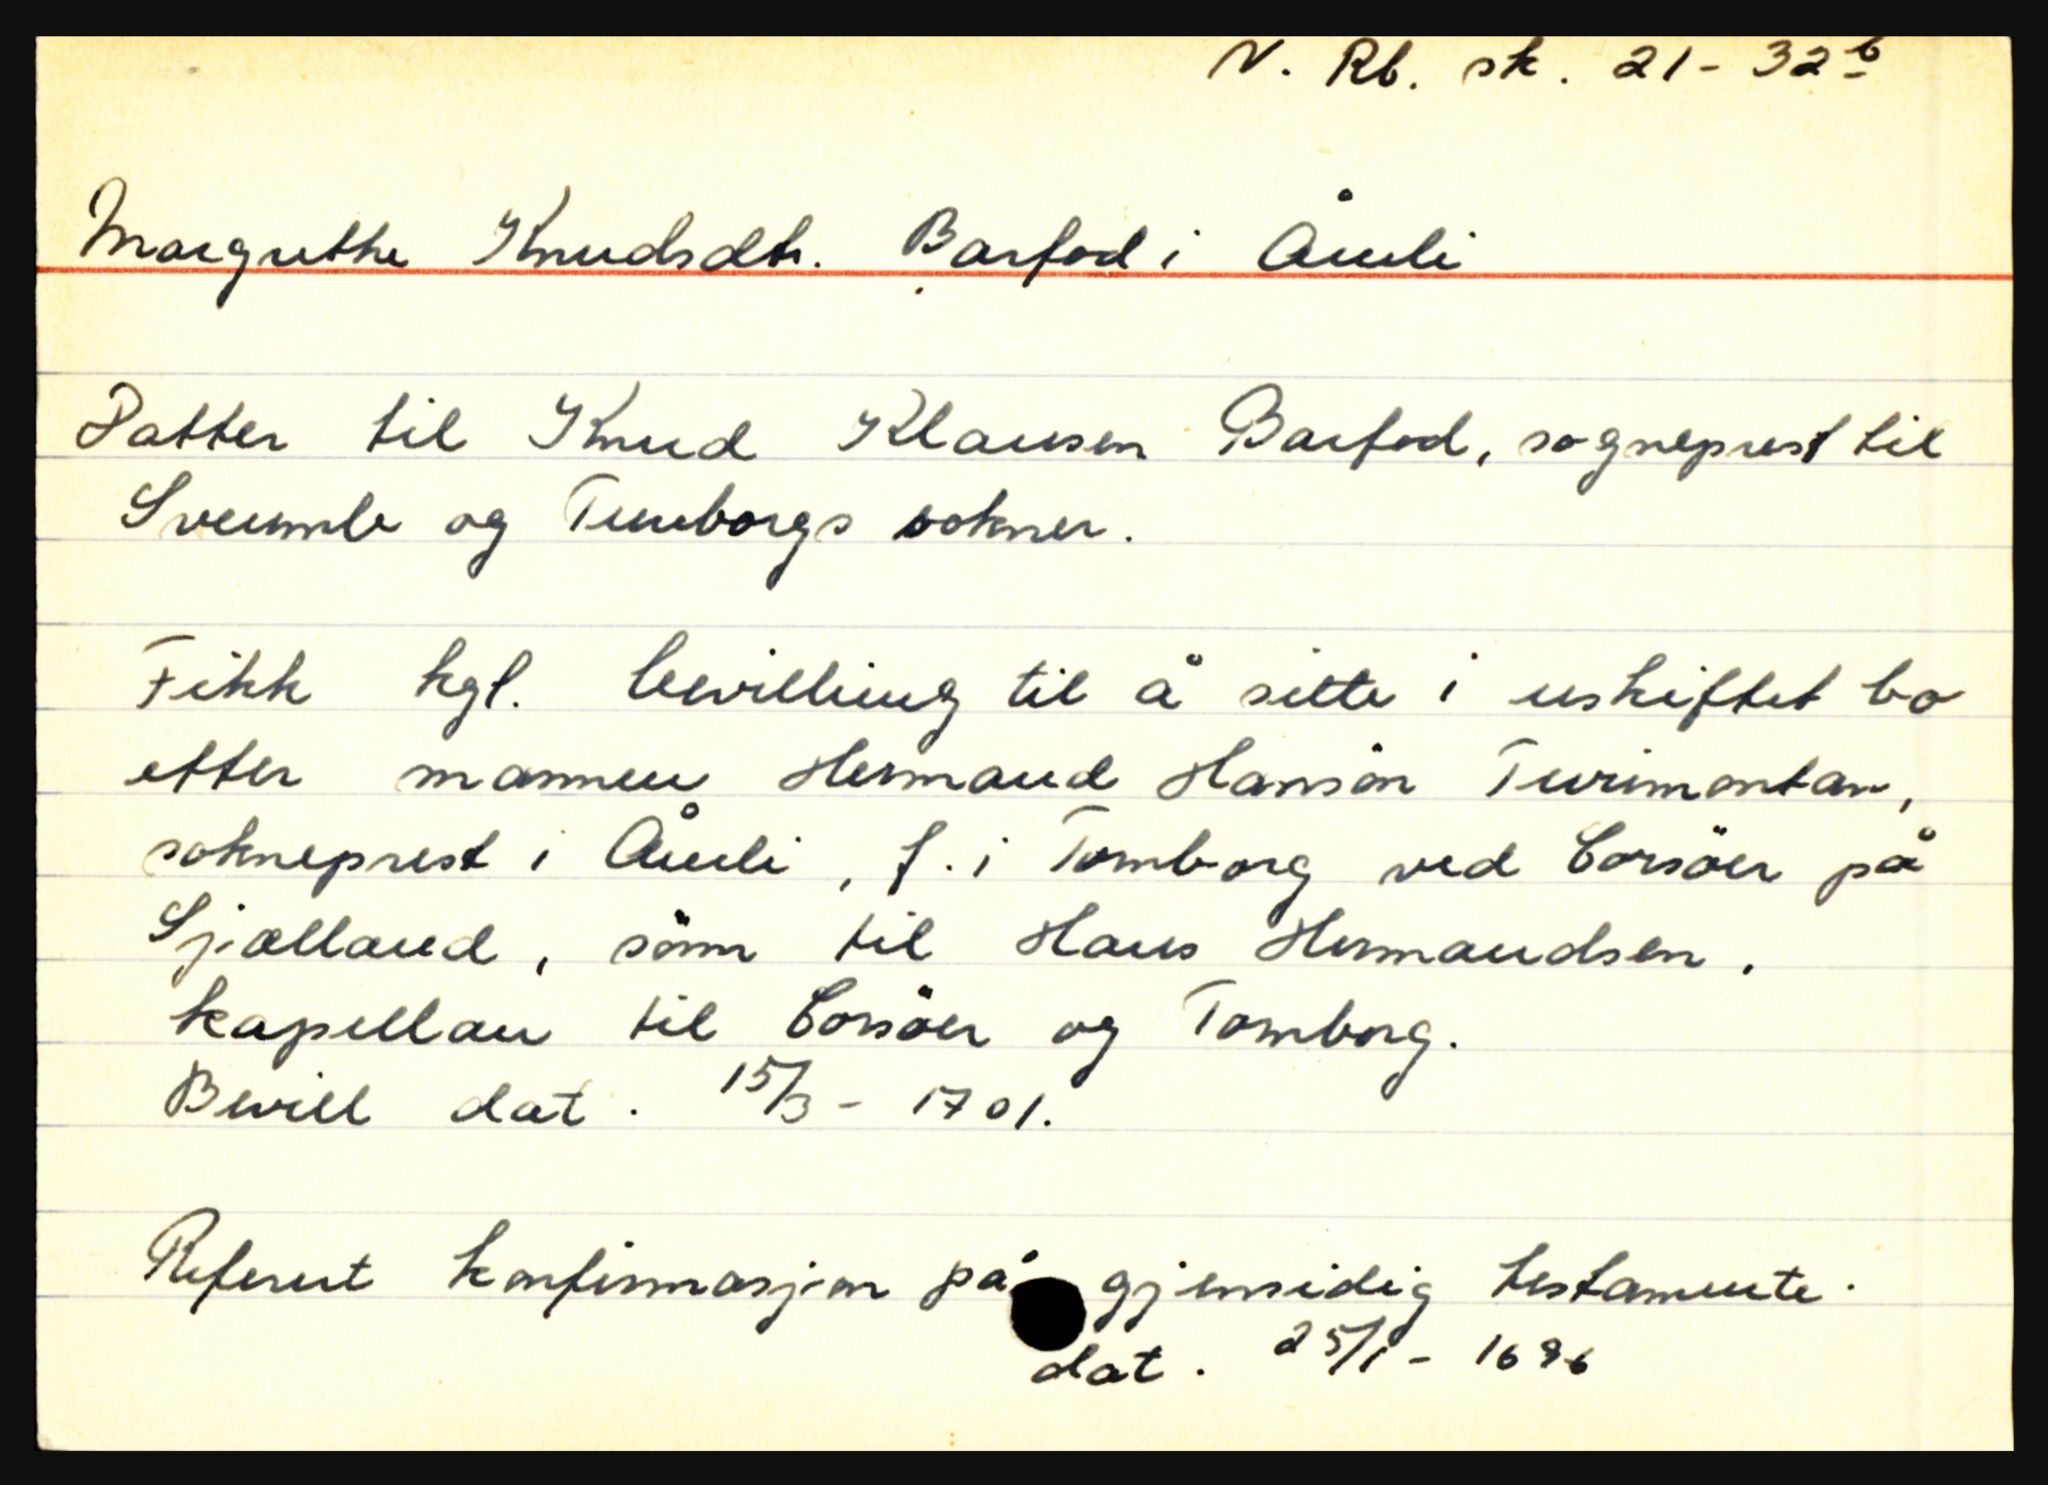 N. Rb. sk. 21 - 32 b
Margrethe Knudsdtr. Barfod i Åmli
Datter til Knud Klausen Barfod, sogneprest til
og sokner.
Fikk kgl. bevilling til å sitte i uskiftet bo
etter mannen Hermand Hansön
sokneprest i Åmli, f. i Tomborg ved Corsöer på
Sjælland, sönn til Hans Hermandsen,
kapellan til Corsöer og Tomborg.
Bevill dat. 15/3 - 1701.
Referert konfirmasjon på gjensidig testamente.
dat. 25/1 - 1696